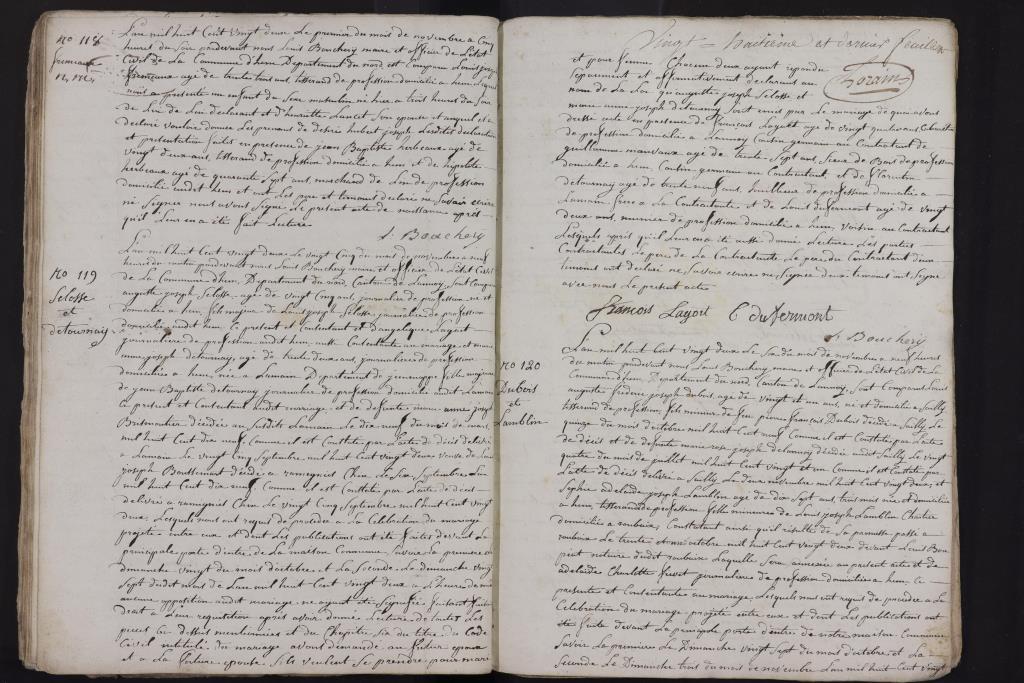 no 118
L'an mil huit Cent vingt deux Le premier du mois de novembre a Cinq
heures du Soir pardevant nous Louis Bouchery maire et officier de L'état
Civil de La Commune d'hem Département du nord, est Comparu Louis joseph
age de trente ans, tisserand de profession domicilié a hem, Lequel
nous a présenté un enfant du Sexe masculin né hier a trois heures du Soir
de Lui déclarant et d'henriette Son épouse et auquel il a
déclaré vouloir donner Les prénoms de désiré hubert joseph Lesdites déclaration
et présentation faites en présence de jean Baptiste herbeaux agé de
vingt deux ans, tisserand de profession domicilié a hem et de hipolite
herbeaux agé de quarante Sept ans, marchand de Lin de profession
domicilié audit hem et ont Les père et témoins déclaré ne Savoir écrire
ni Signer nous avons Signé Le présent acte de naissance après
qu'il Leur en a été fait Lecture.
L. Bouchery
no 119
Selosse
et
detournay
L'an mil huit Cent vingt deux Le vingt Cinq du mois de novembre a neuf
heures du matin pardevant nous Louis Bouchery maire et officier de L'état Civil
de La Commune d'hem, Département du nord, Canton de Lannoy, Sont Comparus
auguste joseph Selosse, agé de vingt Cinq ans, journalier de profession né et
domicilié a hem, fils majeur de Louis joseph Selosse, journalier de profession
domicilié audit hem, Ce présent et Consentant et d'angelique Layout
journaliere de profession audit hem, aussi Consentante au mariage et marie
anne joseph detournay, agé de trente deux ans, journaliere de profession
domiciliée a hem, née a Lamain Département de jemmappe fille majeure
de jean Baptiste detournay journalier de profession domicilié audit Lamain
Ce présent et Consentant audit mariage et de défunte marie anne joseph
décédée au Susdits Lamain Le dix neuf du mois de mars
mil huit Cent dix neuf, Comme il est Constaté par L'acte de décès délivré
a Lamain Le vingt Cinq Septembre, mil huit Cent vingt deux veuve de Louis
joseph Boussemart décédé a ramegnies Chin Le Six Septembre L'an
mil huit Cent dix neuf, Comme il est Constaté par L'acte de décès
délivré a ramegnies Chin Le vingt Cinq Septembre mil huit Cent vingt
deux, Lesquels nous ont requis de procéder a La Célébration du mariage
projeté entre eux et dont Les publications ont été faites devant La
principale porte d'entrée de La maison Commune, Savoir La premiere Le
dimanche vingt du mois d'octobre et La Seconde Le dimanche vingt
Sept dudit mois de L'an mil huit Cent vingt deux a L'heure de midi
aucune opposition audit mariage ne ayant été Signifiée faisant
droit a Leur requisition après avoir donné Lecture de toutes Les
pieces Ci dessus mentionnées et du Chapitre Six du titre du Code
Civil intitulé du mariage avons demandé au futur époux
et a La future épouse S'ils veulent Se prendre pour mari
Vingt = huitième et dernier feuillet
et pour femme Chacun d'eux ayant répondu
Séparément et affirmativement déclarons au
nom de La Loi que auguste joseph Selosse et
marie anne joseph detournay Sont unis par Le mariage de quoi avons
dressé acte en présence de François Layout agé de vingt quatre ans Cabaretier
de profession domicilié a Lannoy Cousin germain au Contractant de
guillaume agé de trente Sept ans, Sieur de Bois de profession
domicilié a hem, Cousin germain au Contractant, et de florentin
detournay agé de trente neuf ans, de profession domicilié a
Lamain frere a La Contractante et de Louis dufermont agé de vingt
deux ans, meunier de profession domicilié a hem, Voisin au Contractant
Lesquels après qu'il Leur en a été aussi donné Lecture Les parties
Contractantes Le pere de La Contractante Le pere du Contractant deux
témoins ont déclaré ne Savoir écrire ni Signer deux témoins ont Signé
avec nous Le présent acte
François Layout C dufermont
L. Bouchery
no 120
Dubois
et
Lamblin
L'an mil huit Cent vingt deux Le Six du mois de novembre a neuf heures
du matin pardevant nous Louis Bouchery, maire et officier de L'état Civil de La
Commune d'hem Département du nord, Canton de Lannoy, Sont Comparus Louis
auguste fidelle joseph dubois, agé de vingt et un ans, né et domicilié a Sailly
tisserand de profession, fils mineur de feu pierre françois Dubois décédé a Sailly Le
quinze du mois d'octobre mil huit Cent neuf Comme il est Constaté par L'acte
de décès et de défunte marie rose joseph delannoy décédée audit Sailly Le vingt
quatre du mois de juillet mil huit Cent vingt et un Comme il est Constaté par
L'acte de décès délivré a Sailly Le deux novembre mil huit Cent vingt deux, et
Sophie adelaide joseph Lamblin agé de dix Sept ans, trois mois née et domiciliée
a hem, tisserande de profession fille mineure de Louis joseph Lamblin
domicilié a roubaix, Consentant ainsi qu'il résulte de Sa procuration passé a
roubaix Le trente et un octobre mil huit Cent vingt deux devant Louis
notaire dudit roubaix Laquelle Sera annexée au présent acte et de
adelaide Charlotte journaliere de profession domiciliée a hem, Ce
présente et Consentante au mariage Lesquels nous ont requis de procéder a La
Célébration du mariage projeté entre eux et dont Les publications ont
été faites devant La principale porte d'entrée de notre maison Commune
Savoir La premiere Le Dimanche vingt Sept du mois d'octobre, et La
Seconde Le Dimanche trois du mois de novembre L'an mil huit Cent vingt